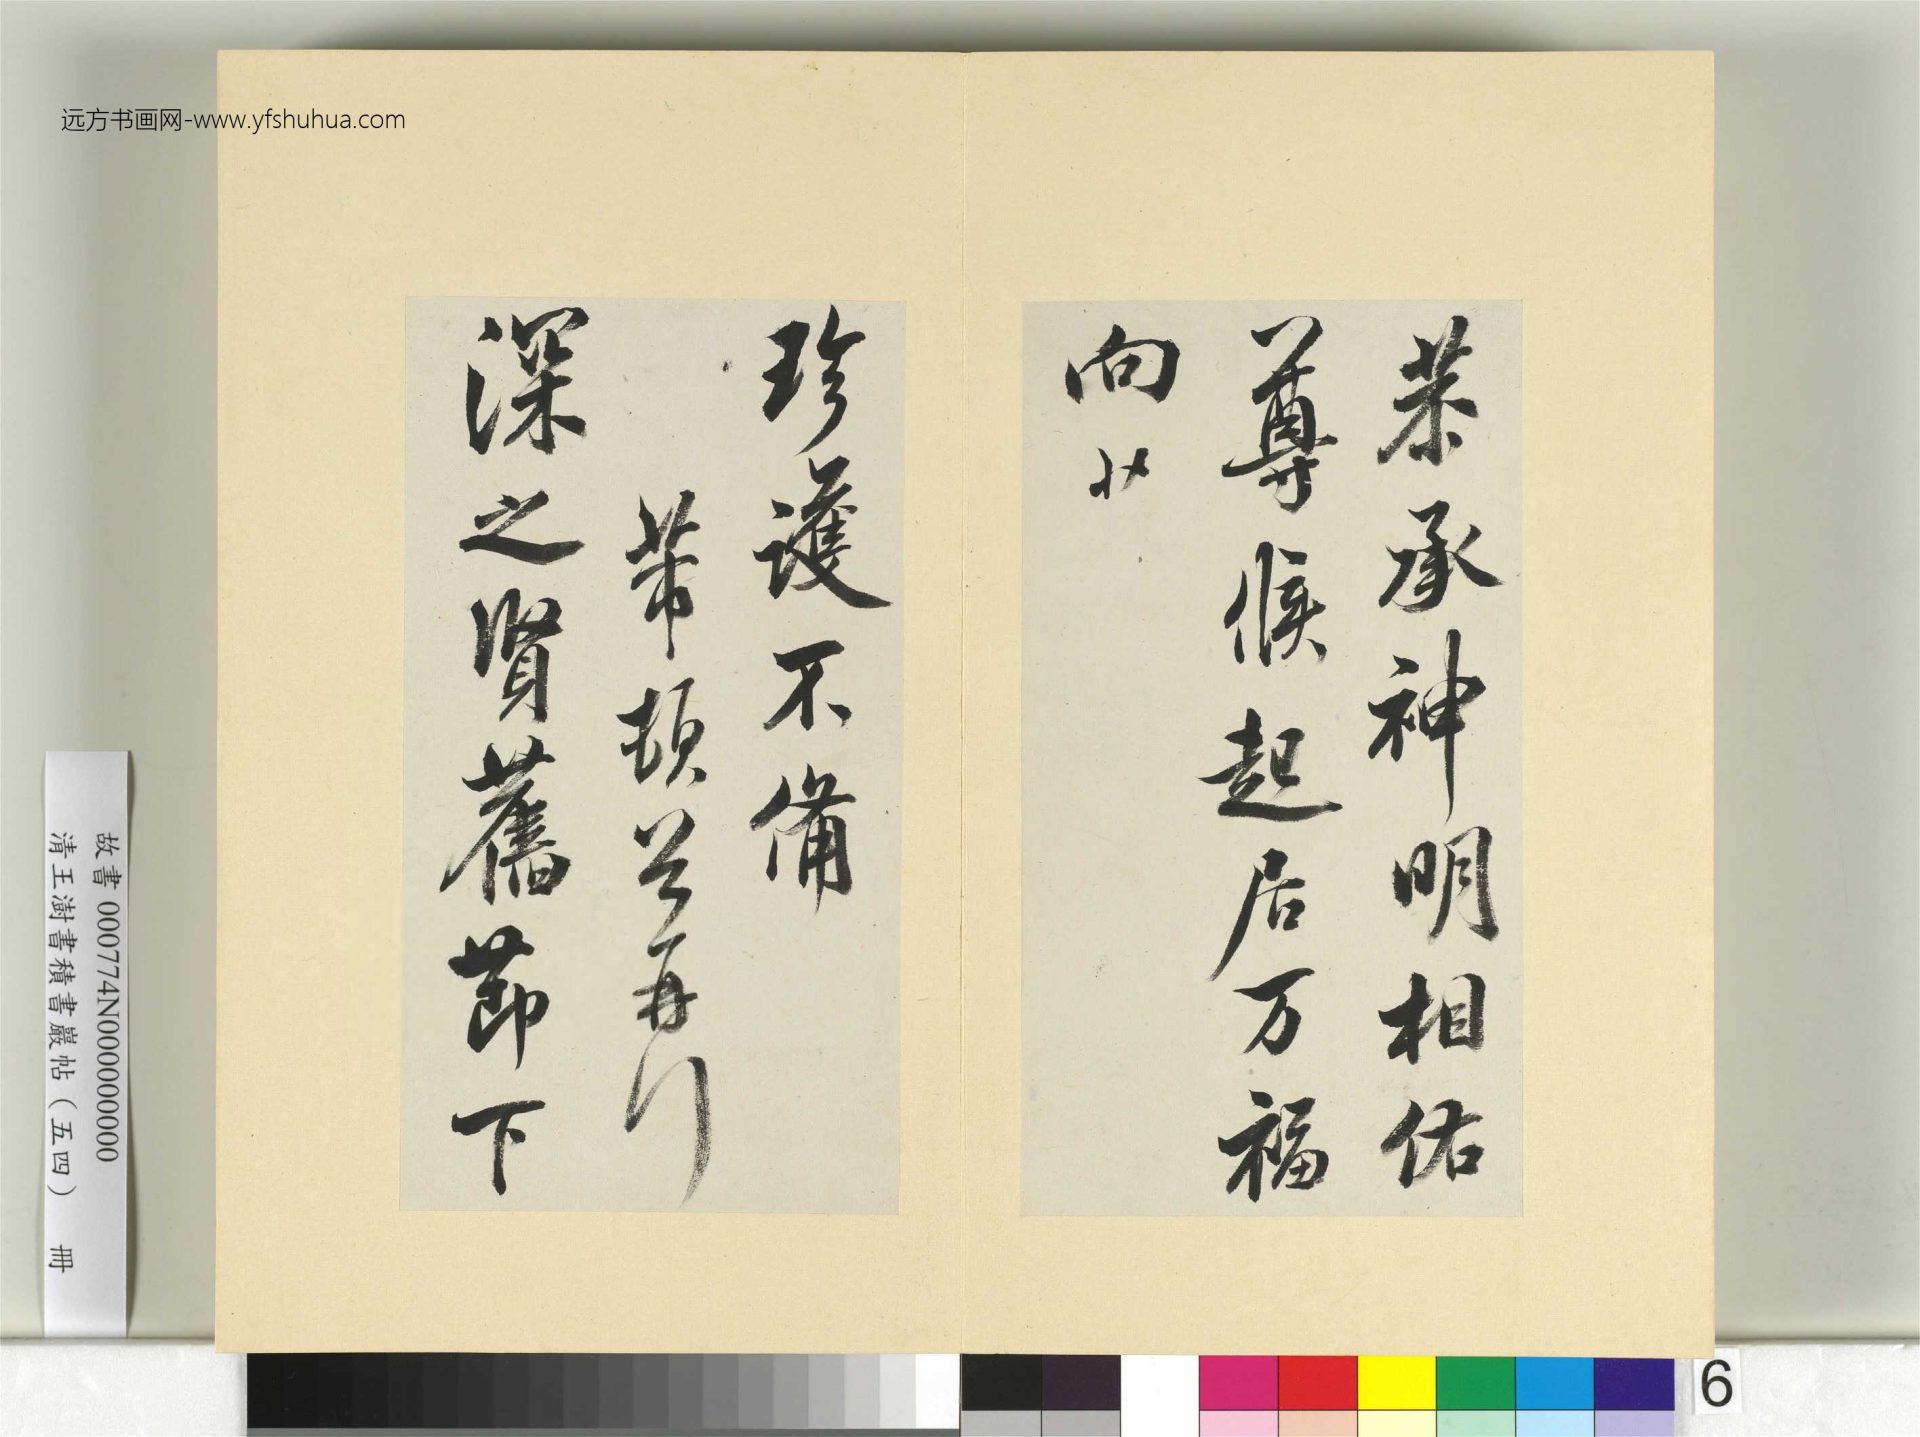 远方书画网-www.yfshuhua.com
恭承神明相佑
尊候起居万福
向少
珍護不備
芾頓首再行
深之賢舊節下
故書 000774N000000000
清王澍書積書巖帖（五四） 冊
6